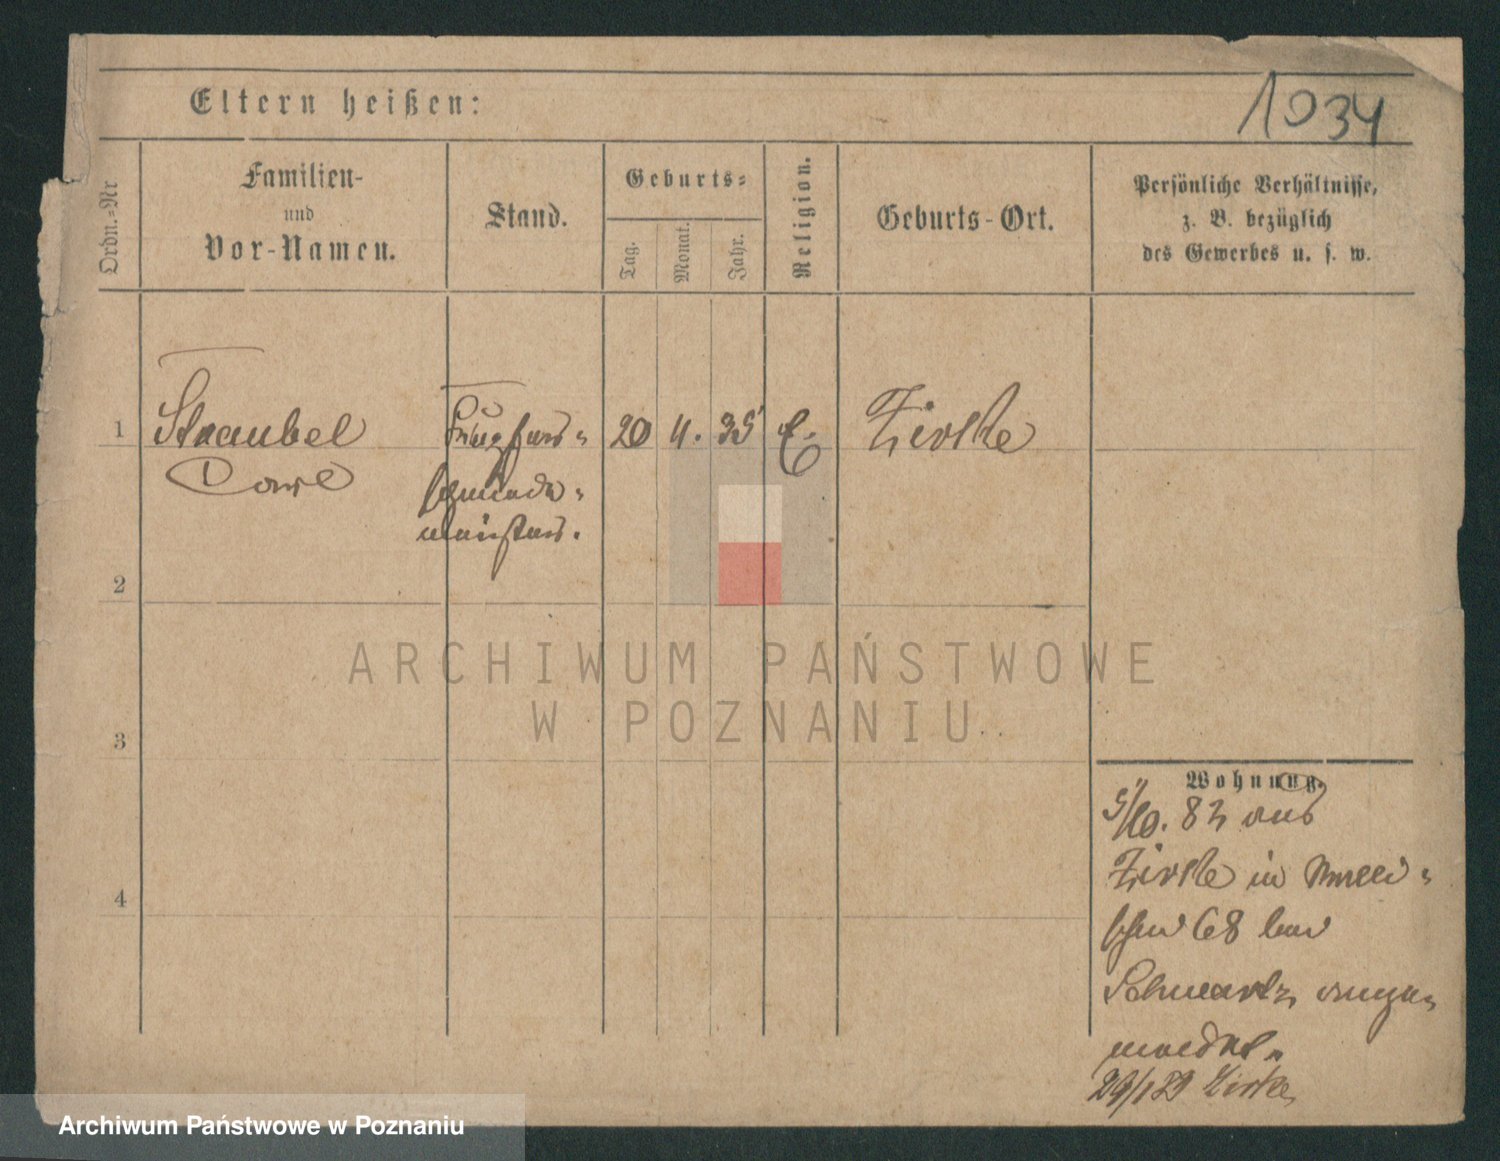 Eltern heißen:
1034
Ordn.=Nr
Familien-
und
Vor-Namen.
Stand.
Geburts=
Tag.
Monat.
Jahr.
Religion.
Geburts-Ort.
Persönliche Verhältnisse,
z. B. bezüglich
des Gewerbes u. s. w.
1
Straubel
Carl
20
4.
35
E.
Zirke
2
3
4
Wohnung.
5/10. 82 aus
Zirke in
68 bei
Schwartz ange=
meldet.
Zirke
ARCHIWUM PAŃSTWOWE
W POZNANIU
Archiwum Państwowe w Poznaniu